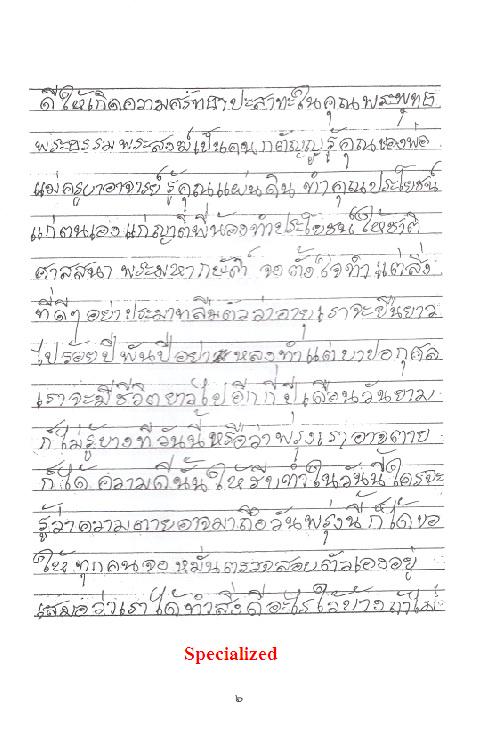 ดีให้เกิดความศรัทธาปะสาทะในคุณพระพุทธ
พระธรรม พระสงฆ์เป็นคนกตัญญูรู้คุณของพ่อ
แม่ครูบาอาจารย์ รู้คุณแผ่นดิน ทำคุณประโยชน์
แก่ตนเอง แก่ญาติพี่น้องทำประโยชน์ให้ชาติ
ศาสสนา พระมหากษัตริ์ จงตั้งใจทำแต่สิ่ง
ที่ดีๆ อย่าประมาทลืมตัวว่าอายุเราจะยืนยาว
ไปร้อยปีพันปีอย่าหลงทำแต่บาปอกุศล
เราจะมีชีวิตยาวไปอีกกี่ปีเดือนวันยาม
ก็ไม่รู้บางทีวันนี้หรือว่าพรุ่งเราอาจตาย
ก็ได้ ความดีนั้นให้รีบทำในวันนี้ใครจะ
รู้ว่าความตายอาจมาถึงวันพรุ่งนี้ก็ได้ขอ
ให้ทุกคนจงหมั่นตรวจสอบตัวเองอยู่
เสมอว่าเราได้ทำสิ่งดีอะไรไว้บ้างถ้าไม่
Specialized
๒